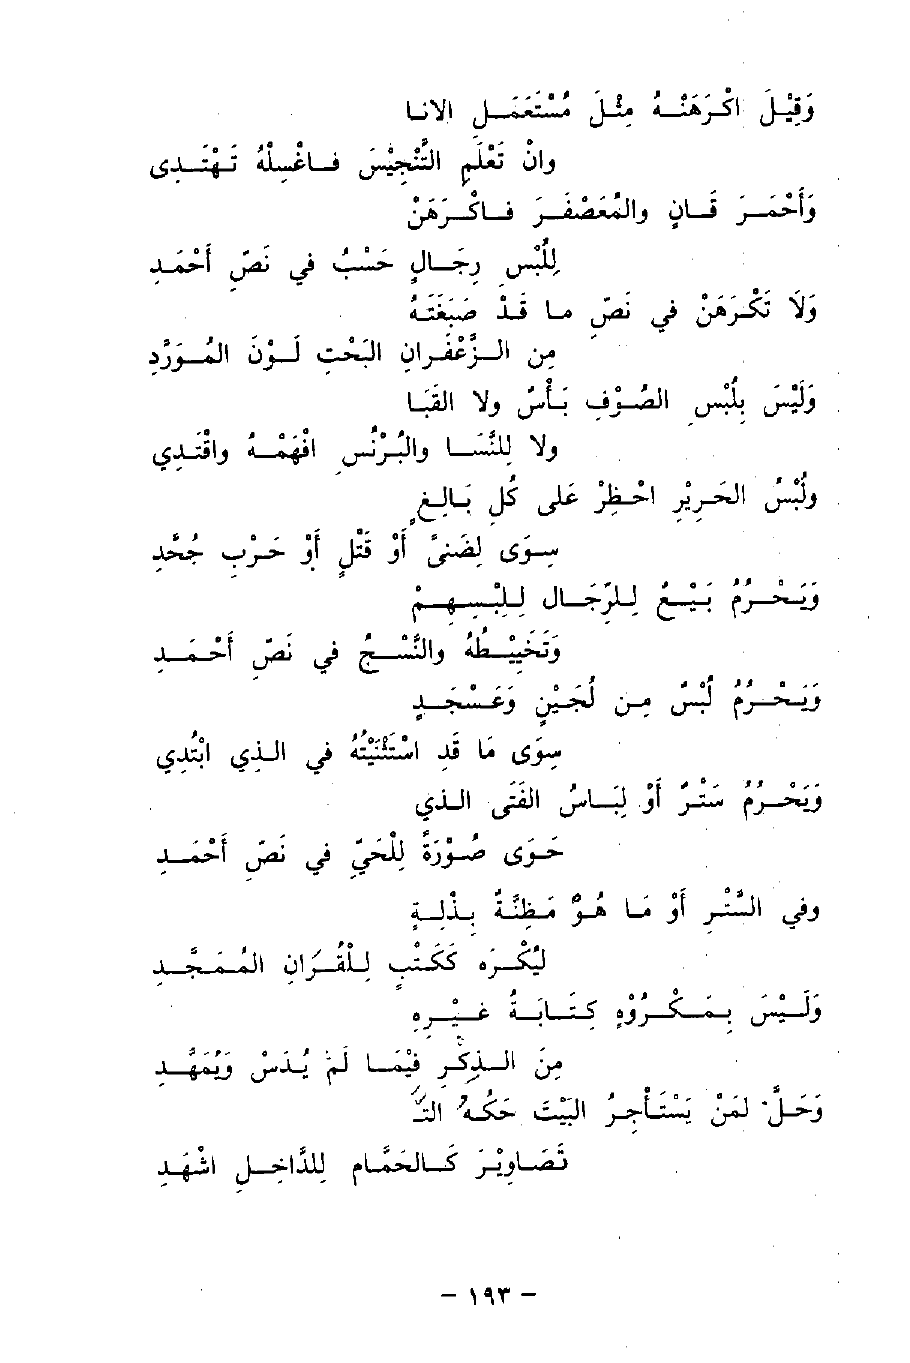 وَقِيْلَ اكْرَهَنْهُ مِثْلَ مُسْتَعْمَلِ الانا
وانْ تَعْلَمِ التَّنْجِيْسَ فاغْسِلْهُ تَهْتَدِى
وَأَحْمَرَ قَانٍ والمُعَصْفَرَ فاكْرَهَنْ
لِلُبْسِ رِجَالٍ حَسْبُ في نَصّ أَحْمَدِ
وَلَا تَكْرَهَنْ في نَصّ ما قَدْ صَبَغْتَهُ
مِن الزَّعْفَرانِ البَحْتِ لَوْنَ المُوَرَّدِ
وَلَيْسَ بِلُبْسِ الصُوْفِ بَأْسٌ ولا القَبَا
ولا لِلنِّسَا والبُرْنُسِ افْهَمْهُ واقْتَدِي
ولُبْسُ الحَرِيْرِ احْظِرْ عَلى كُلِ بَالِغٍ
سِوَى لِضَنىً أَوْ قَتْلِ أَوْ حَرْبِ جُحَّدِ
وَيَحْرُمُ بَيْعُ لِلرِّجَال لِلِبْسِهِمْ
وَتَخْيِيْطُهُ والنَّسْجُ في نَصّ أَحْمَدِ
وَيَحْرُمُ لُبْسٌ مِن لُجَيْنٍ وَعَسْجَدٍ
سِوَى مَا قَد اسْتَثْنَيْتُهُ في الذي ابْتُدِي
وَيَحْرُمُ سَتْرٌ أَوْ لِبَاسُ الفَتَى الذي
حَوَى صُوْرَةً لِلْحَيّ في نَصّ أَحْمَدِ
وفي السَّتْرِ أَوْ مَا هُوَّ مَظِنَّةُ بِذْلَةٍ
لِيُكْرَه كَكَتْبٍ لِلْقُرَانِ المُمَجَّدِ
وَلَيْسَ بِمَكْرُوْهٍ كِتَابَةُ غَيْرِهِ
مِنَ الذِكْرِ فِيْمَا لَمْ يُدَسْ وَيُمَهَّدِ
وَحَلَّ لِمَنْ يَسْتَأْجِرُ البَيْتَ حَكُّهُ التـَّ
تَصَاوِيْرَ كَالحَمَّامِ لِلدَّاخِلِ اشْهَدِ
- ١٩٣ -